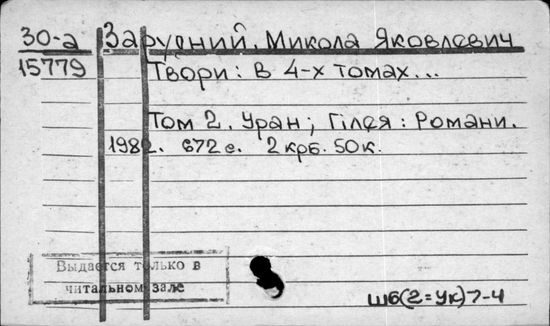 30-а Зарудний, Микола Яковлевич
15779 Твори: В 4-х томах...
Том 2. Уран; Гілея: Романи.
1982. 672с. 2 крб. 50к.
Выдается только в
читальном зале
Шб(2=Ук)7-4